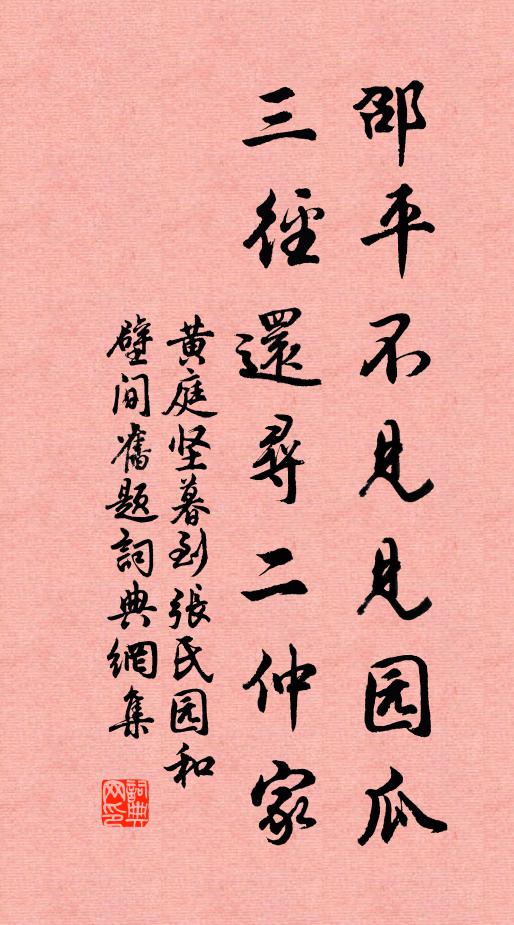 邵平不見見园瓜
三徑還尋二仲家
黄庭坚暮到張氏园和
壁间舊題詞典網集
詞典网印